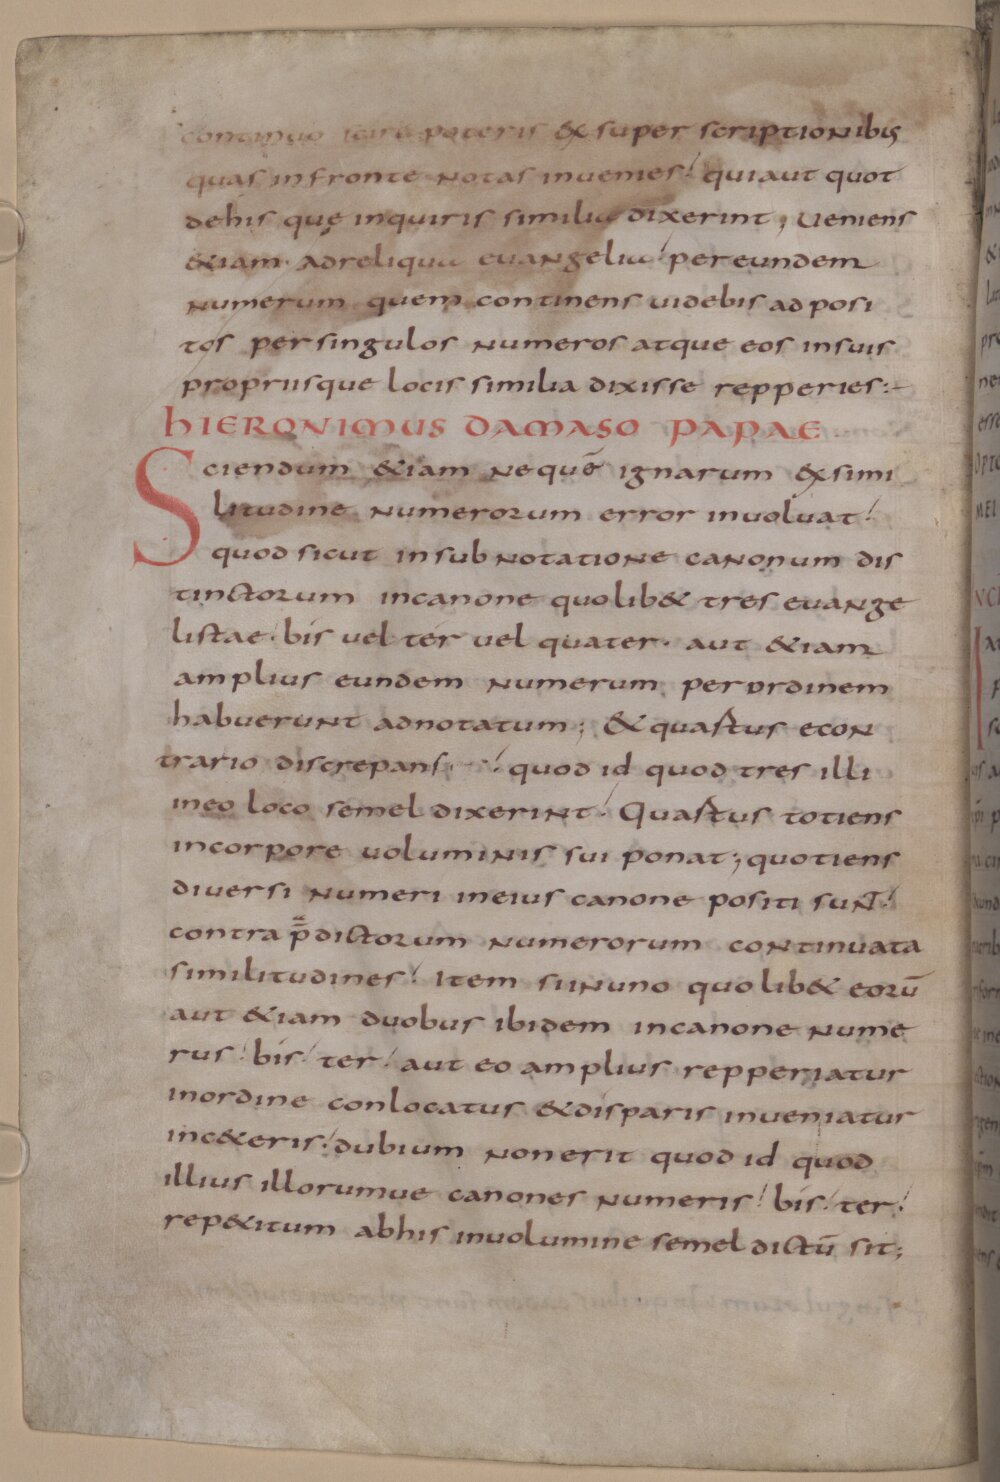 continuo scire poteris & super scriptionibus
quas infronte notas inuenies! quiaut quot
dehis quę inquiris similia dixerint; Ueniens
&iam adreliqua euangelia! pereundem
numerum quem continens uidebis ad posi
tos persingulos numeros atque eos insuis
propriisque locis similia dixisse repperies:-
HIERONIMUS DAMASO PAPAE
Sciendum &iam nequē ignarum exsimi
litudine numerorum error inuoluat!
quod sicut insubnotatione canonum dis
tinctorum incanone quolib& tres euange
listae bis uel ter uel quater. aut &iam
amplius eundem numerum perordinem
habuerunt adnotatum; & quastus econ
trario discrepans! quod id quod tres illi
ineo loco semel dixerint! Quastus totiens
incorpore uoluminis sui ponat; quotiens
diuersi numeri ineius canone positi sunt!
contra p̄dictorum numerorum continuata
similitudines! Item siinuno quolib& eorū
aut &iam duobus ibidem incanone nume
rus! bis! ter! aut eo amplius repperiatur
inordine conlocatus &disparis inueniatur
inc&eris! dubium nonerit quod id quod
illius illorumue canones numeris! bis! ter!
rep&itum abhis inuolumine semel dictū sit;